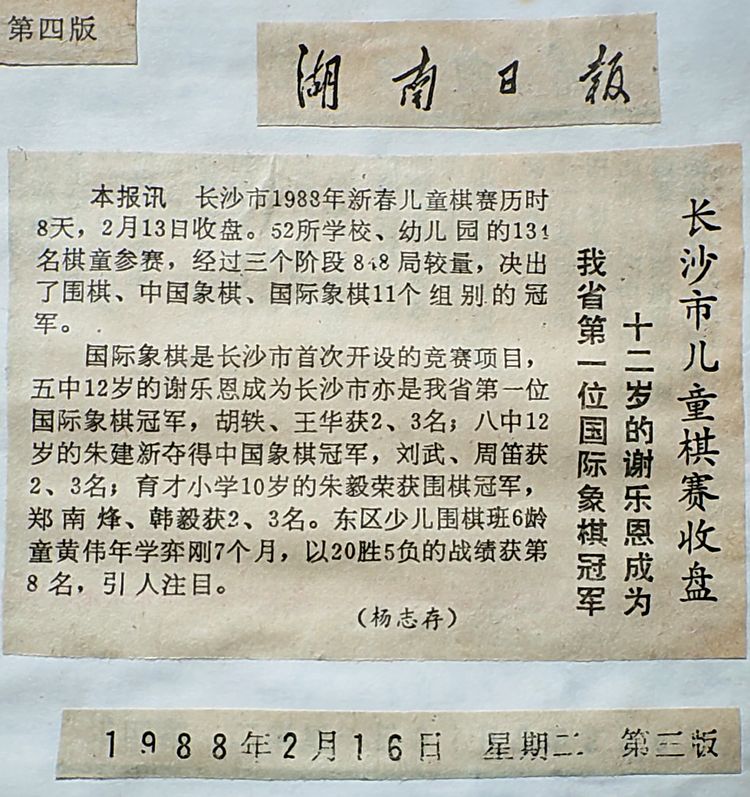 第四版
湖南日报
长沙市儿童棋赛收盘
十二岁的谢乐恩成为
我省第一位国际象棋冠军
本报讯 长沙市1988年新春儿童棋赛历时
8天，2月13日收盘。52所学校、幼儿园的134
名棋童参赛，经过三个阶段848局较量，决出
了围棋、中国象棋、国际象棋11个组别的冠
军。
国际象棋是长沙市首次开设的竞赛项目，
五中12岁的谢乐恩成为长沙市亦是我省第一位
国际象棋冠军，胡轶、王华获2、3名；八中12
岁的朱建新夺得中国象棋冠军，刘武、周笛获
2、3名；育才小学10岁的朱毅荣获围棋冠军，
郑南烽、韩毅获2、3名。东区少儿围棋班6龄
童黄伟年学弈刚7个月，以20胜5负的战绩获第
8名，引人注目。
（杨志存）
1988年2月16日 星期二 第三版